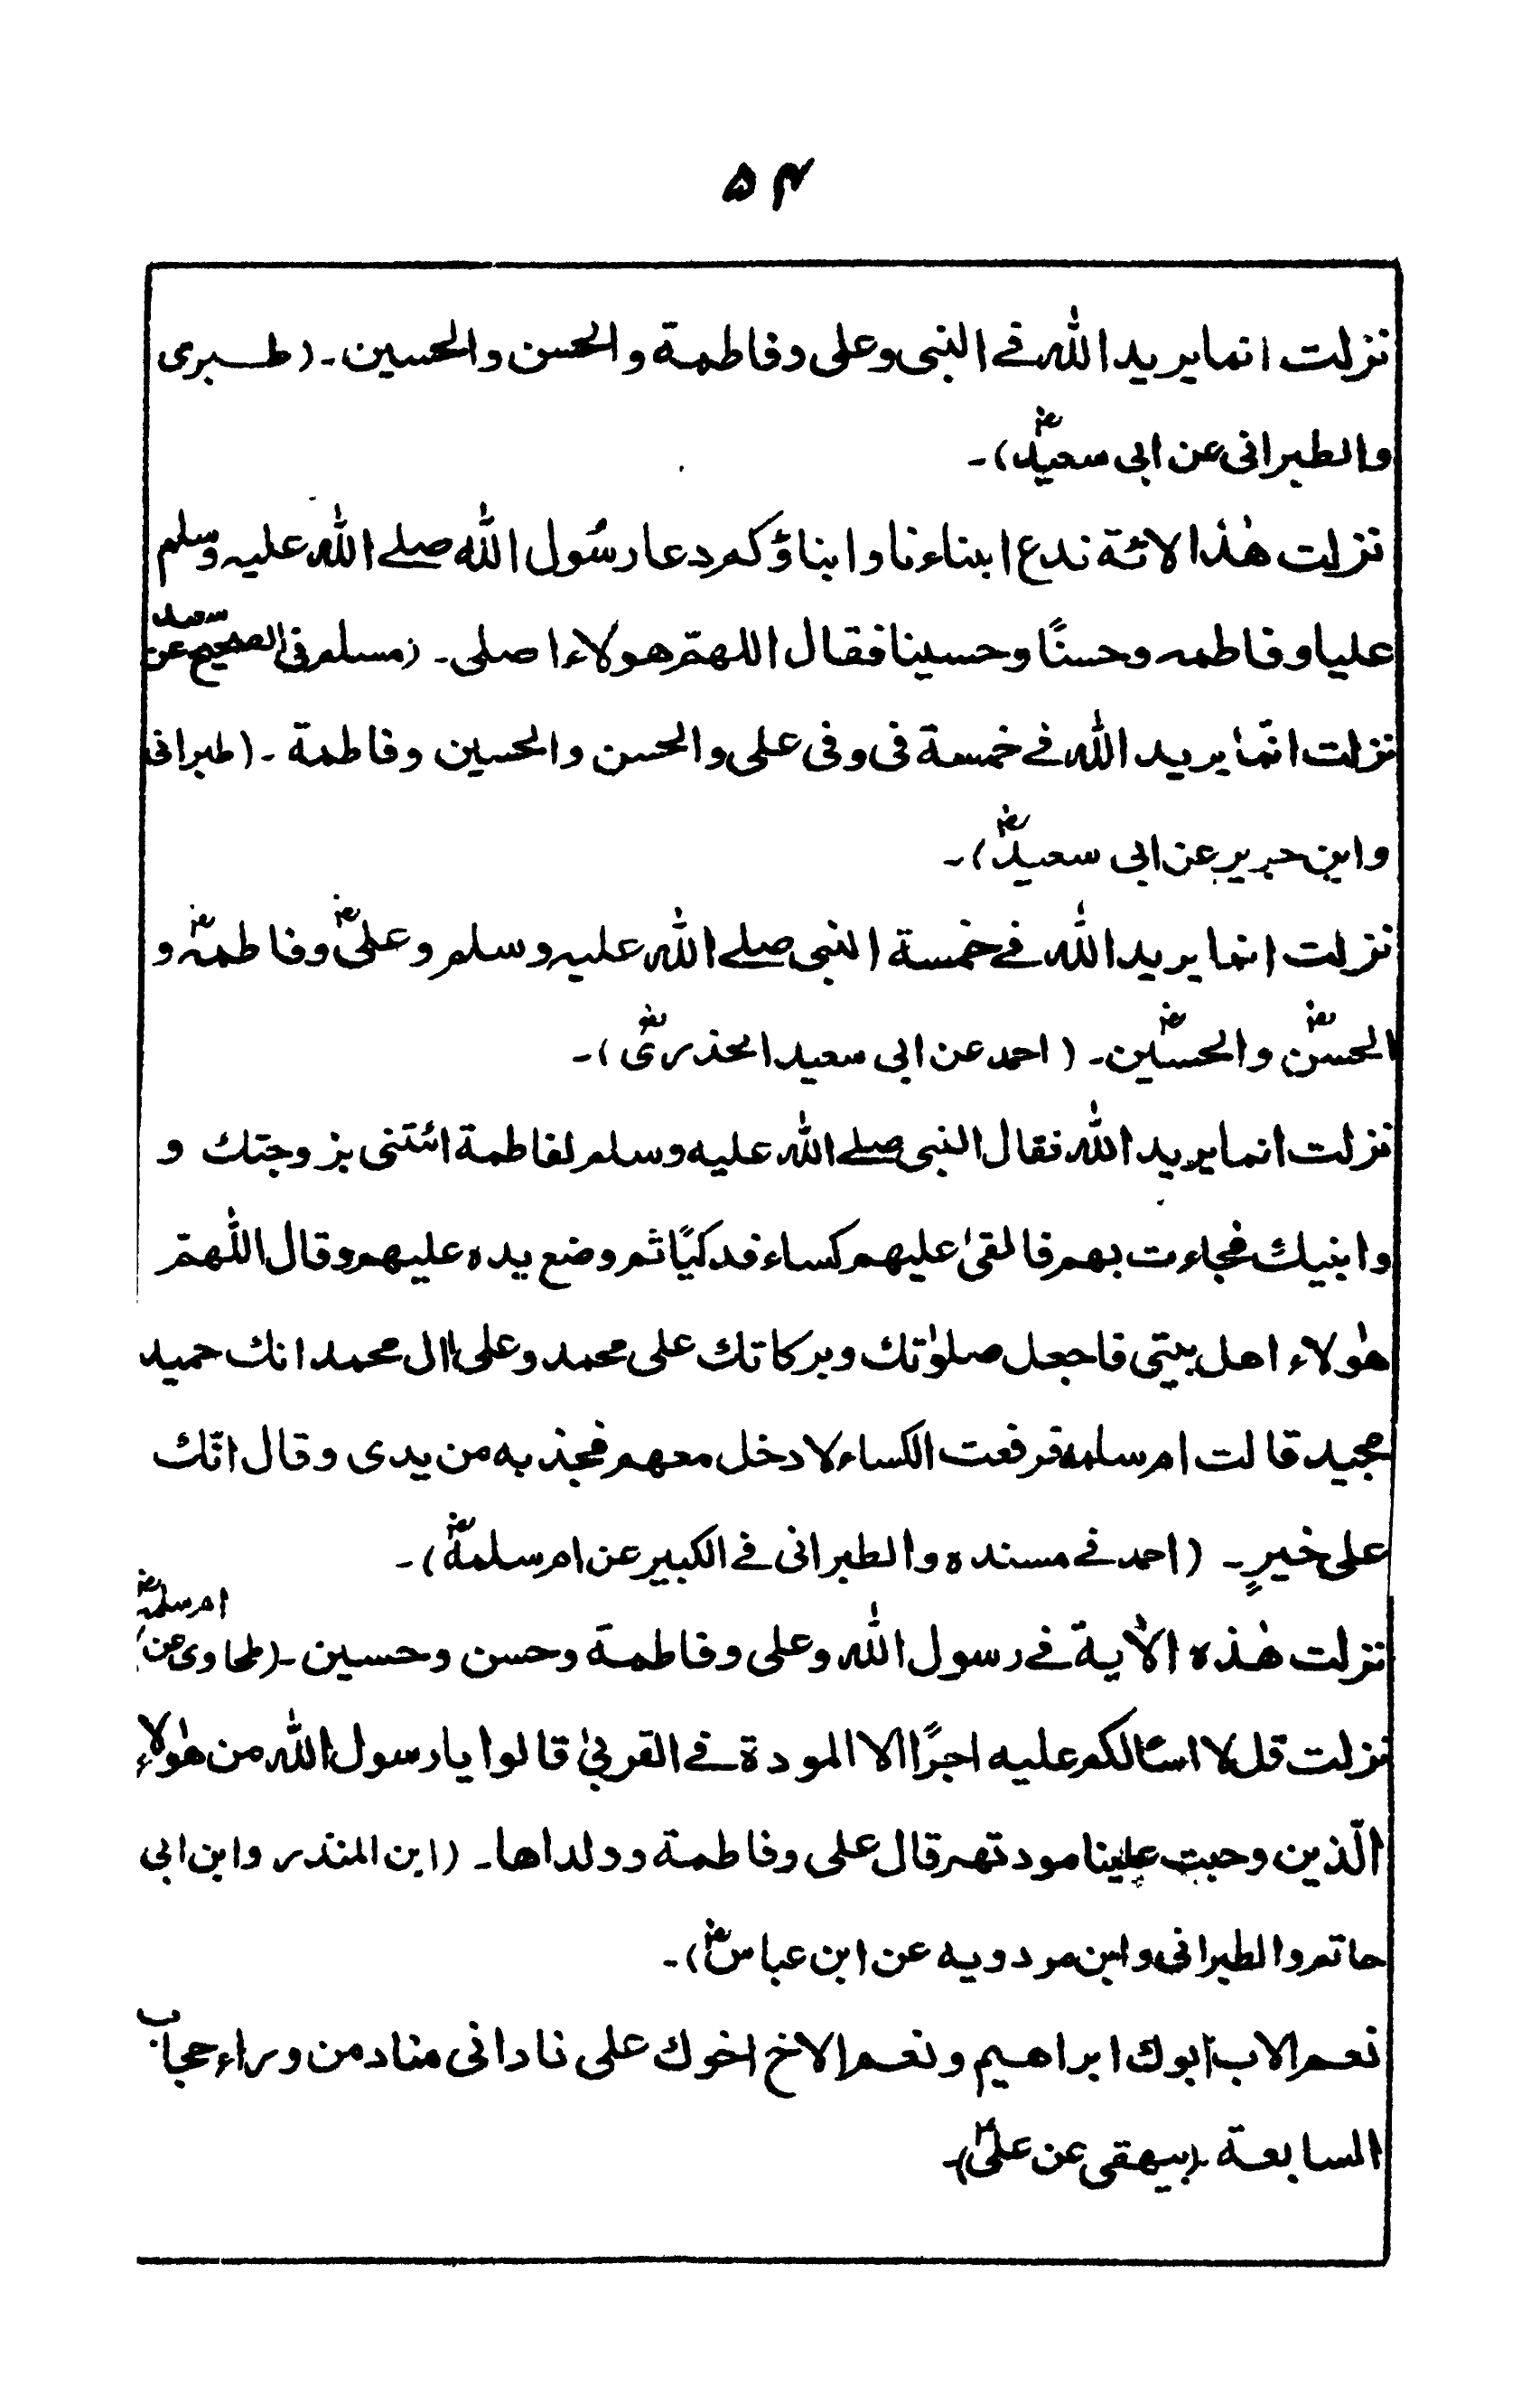 ۵۴
نزلت انما يريد الله فے النبى وعلى وفاطمة والحسن والحسين۔ (طبرى
والطبرانى عن ابى سعيدؓ)۔
نزلت هٰذا لائة ندع ابناءنا وابناؤكم دعا رسُول الله صلے الله عليہ وسلم
عليا وفاطمہ وحسنًا وحسينا فقال اللهمّ هولاء اصلى۔ (مسلم فى الصحيح عن سعيد
نزلت انّما يريد الله فے خمسة فى وفى على والحسن والحسين وفاطمة۔ (طبرانى
وابن جرير عن ابى سعيدؓ)۔
نزلت انما يريد الله فے خمسة النبى صلے الله عليہ وسلم وعلىؓ وفاطمہؓ و
الحسنؓ والحسينؓ۔ (احمد عن ابى سعيد الخذرىؓ)۔
نزلت انما يريد الله فقال النبى صلے الله عليه وسلم لفاطمة ائتنى بزوجتك و
وابنيك فجاءت بهم فالقىٰ عليهم كساء فدكيًا ثم وضع يده عليهم وقال اللّٰهمّ
هٰولاء اهل بيتى فاجعل صلوٰتك وبركاتك على محمد وعلى اٰل محمد انك حميد
مجيد قالت ام سلمة فرفعت الكساء لادخل معهم فجذبه من يدى وقال انّك
على خيرٍ۔ (احمد فے مسنده والطبرانى فے الكبير عن ام سلمةؓ)۔
نزلت هٰذه الاٰية فے رسول الله وعلى وفاطمة وحسن وحسين۔ (طحاوى عن ام سلمہؓ)
نزلت قل لا اسئالكم عليه اجرًا الا المودة فے القربىٰ قالوا يا رسول الله من هٰولاء
الّذين وجبت علينا مودتهم قال على وفاطمة وولداها۔ (ابن المنذر وابن ابى
حاتم والطبرانى وابن مردويه عن ابن عباسؓ)۔
نعم الاب ابوك ابراهيم ونعم الاخ اخوك على نادانى مناد من وراء حجاب
السابعة۔ (بيهقى عن علىؓ)۔